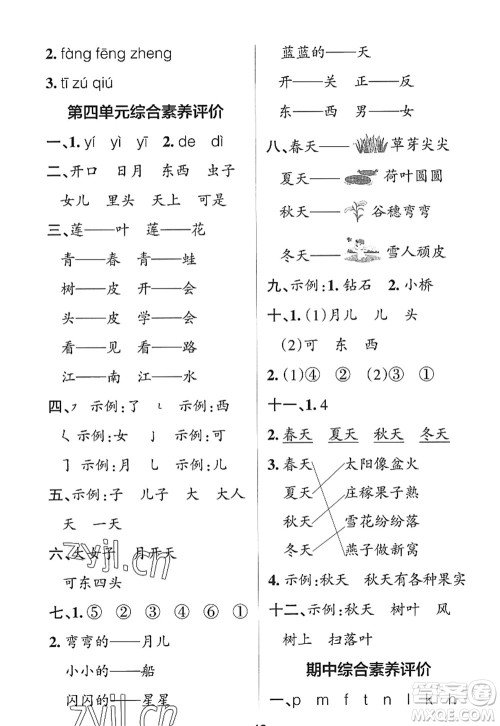 2. fàng fēng zheng
3. tī zú qiú
第四单元综合素养评价
一、1. yí yìng yī 2. de dì
二、开口 日月 东西 虫子
女儿 里头 天上 可是
三、莲——叶 莲——花
青——春 青——蛙
树——皮 开——会
头——皮 学——会
看——见 看——路
江——南 江——水
四、㇇ 示例:了 ㇃ 示例:西
ㄑ 示例:女 ㇁ 示例:子
㇆ 示例:月 示例:几
五、示例:子 儿子 大 大人
天 一天
六、大女子 月开天
可东四头
七、1. ⑤ ② ④ ③ ⑥ ①
2. 弯弯的——月儿
小小的——船
闪闪的——星星
蓝蓝的——天
开——关 天——地
东——西 男——女
八、春天—— 草芽尖尖
夏天—— 荷叶圆圆
秋天—— 谷穗弯弯
冬天—— 雪人顽皮
九、示例:1. 钻石 2. 小桥
十、1. (1)月儿 儿 头
(2)可 东 西
2. (1)④ ② (2)③ ①
十一、1. 4
2. 春天 夏天 秋天 冬天
3. 春天 太阳像盆火
夏天 庄稼果子熟
秋天 雪花纷纷落
冬天 燕子做新窝
4. 示例:秋天 秋天有各种果实
十二、示例:秋天 树叶 风
树上 扫落叶
期中综合素养评价
一、p m f t n l k h
zyjl.cn